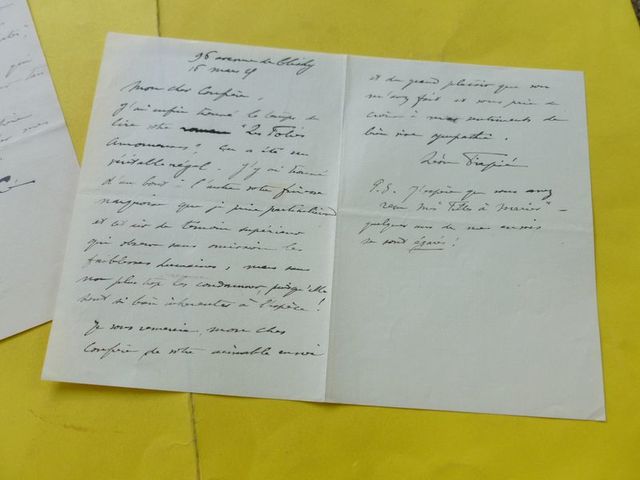 96 avenue de Clichy
15 mars
Mon cher Confrère,
J'ai enfin trouvé le temps de
lire votre roman "Les Folies
Amoureuses". Ça a été un
véritable régal. J'y ai trouvé
d'un bout à l'autre votre finesse
narquoise que je prise particulièrement
et cet air de témoin supérieur
qui observe sans omission les
faiblesses humaines, mais sans
non plus trop les condamner, puisqu'elles
sont si bien inhérentes à l'espèce !
Je vous remercie, mon cher
Confrère de votre aimable envoi
et du grand plaisir que vous
m'avez fait et vous prie de
croire à mes sentiments de
bien vive sympathie.
Léon Frapié
P.S. J'espère que vous avez
reçu mes "Filles à Marier" –
quelques uns de mes envois
se sont égarés !